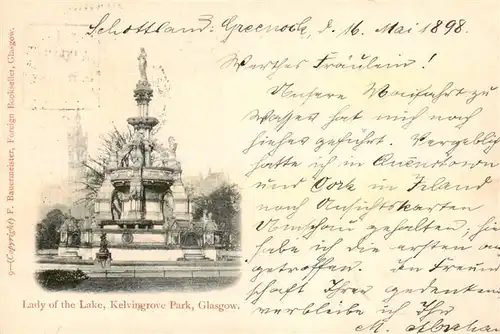 Schottland: Greenock, d. 16. Mai 1898.
Werthes Fräulein!
Unsere Maifahrt zu
Wasser hat mich noch
hieher geführt. Vergeblich
hatte ich in Queenstown
und Cork in Irland
nach Ansichtskarten
Umschau gehalten; hier
habe ich die ersten an
getroffen. In Freund
schaft Ihrer gedenkend
verbleibe ich Ihr
M.
9—(Copyright) F. Bauermeister, Foreign Bookseller, Glasgow.
Lady of the Lake, Kelvingrove Park, Glasgow.